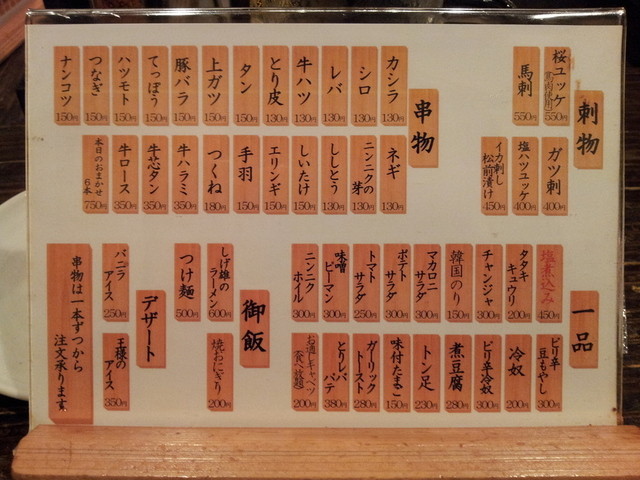 刺物
桜ユッケ
(馬肉使用)
550円
馬刺
550円
ガツ刺
400円
塩ハツユッケ
400円
イカ刺し
松前漬け
450円
串物
カシラ
130円
シロ
130円
レバ
130円
牛ハツ
130円
とり皮
130円
タン
150円
上ガツ
150円
豚バラ
150円
てっぽう
150円
ハツモト
150円
つなぎ
150円
ナンコツ
150円
ネギ
130円
ニンニクの
芽
130円
ししとう
130円
しいたけ
150円
エリンギ
150円
手羽
150円
つくね
180円
牛ハラミ
350円
牛芯タン
350円
牛ロース
350円
本日のおまかせ
七本
750円
一品
塩煮込み
450円
タタキ
キュウリ
200円
チャンジャ
300円
韓国のり
150円
マカロニ
サラダ
300円
ポテト
サラダ
300円
トマト
サラダ
250円
味噌
ピーマン
300円
ニンニク
ホイル
300円
ピリ辛
豆もやし
300円
冷奴
200円
ピリ辛冷奴
300円
煮豆腐
280円
トン足
230円
味付たまご
150円
ガーリック
トースト
280円
とりレバ
パテ
380円
お通しキャベツ
(食べ放題)
200円
御飯
しげ雄の
ラーメン
600円
つけ麺
500円
焼おにぎり
200円
デザート
バニラ
アイス
250円
王様の
アイス
350円
串物は一本ずつから
注文承ります